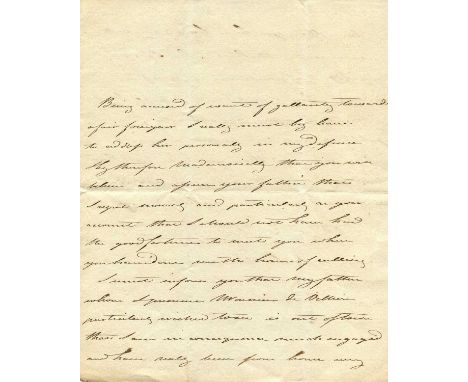 Being accused of want of gallantry towards
a fair foreigner I really must beg leave
to address her personally in my defence
Pray therefore Mademoiselle that you will
believe and assure your father that
I regret sincerely and particularly on your
account that I should not have had
the good fortune to meet you when
you have done me the honor of calling
I must inform you that my father
whom I presume Monsieur De
particularly wished to see is out of town
that I am in consequence much engaged
and have really been from home every